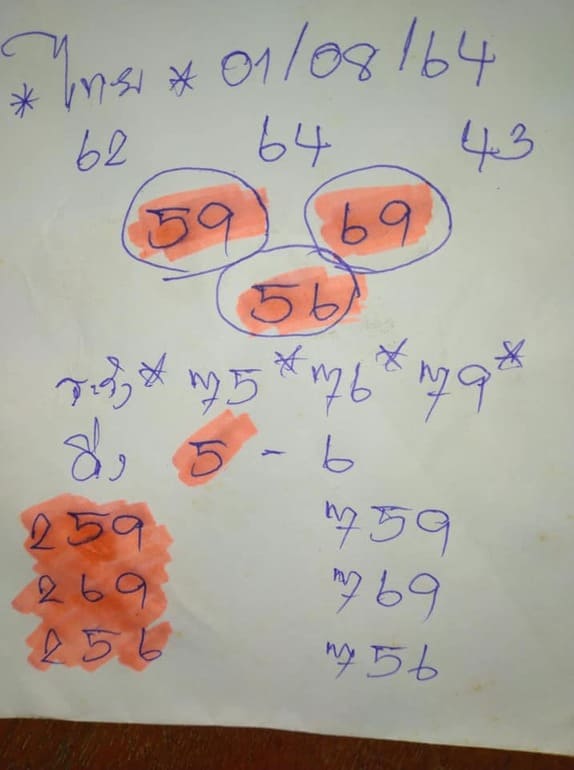 *ไทย* 01/08/64
62 64 43
59 69
56
ระวัง* 75* 76* 79*
วิ่ง 5 - 6
259 759
269 769
256 756